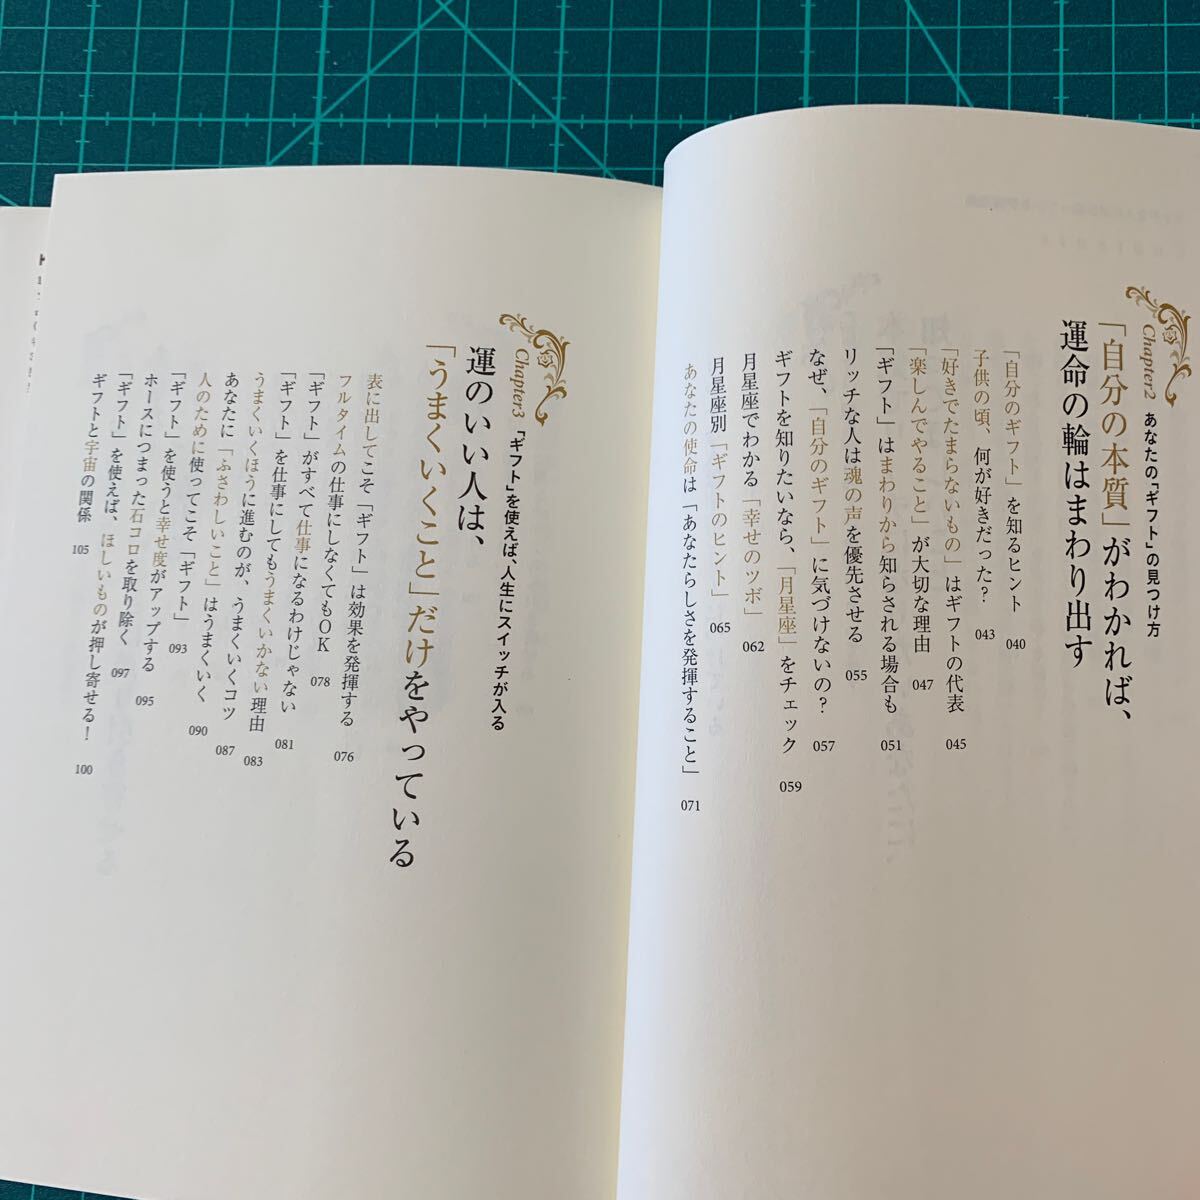 Chapter2 あなたの「ギフト」の見つけ方
「自分の本質」がわかれば、
運命の輪はまわり出す
「自分のギフト」を知るヒント 040
子供の頃、何が好きだった? 043
「好きでたまらないもの」はギフトの代表 045
「楽しんでやること」が大切な理由 047
「ギフト」はまわりから知らされる場合も 051
リッチな人は魂の声を優先させる 055
なぜ、「自分のギフト」に気づけないの? 057
ギフトを知りたいなら、「月星座」をチェック 059
月星座でわかる「幸せのツボ」 062
月星座別「ギフトのヒント」 065
あなたの使命は「あなたらしさを発揮すること」 071
Chapter3 「ギフト」を使えば、人生にスイッチが入る
運のいい人は、
「うまくいくこと」だけをやっている
表に出してこそ「ギフト」は効果を発揮する 076
フルタイムの仕事にしなくてもOK 078
「ギフト」がすべて仕事になるわけじゃない 081
「ギフト」を仕事にしてもうまくいかない理由 083
うまくいくほうに進むのが、うまくいくコツ 087
あなたに「ふさわしいこと」はうまくいく 090
人のために使ってこそ「ギフト」 093
「ギフト」を使うと幸せ度がアップする 095
ホースにつまった石コロを取り除く 097
「ギフト」を使えば、ほしいものが押し寄せる! 100
ギフトと宇宙の関係 105